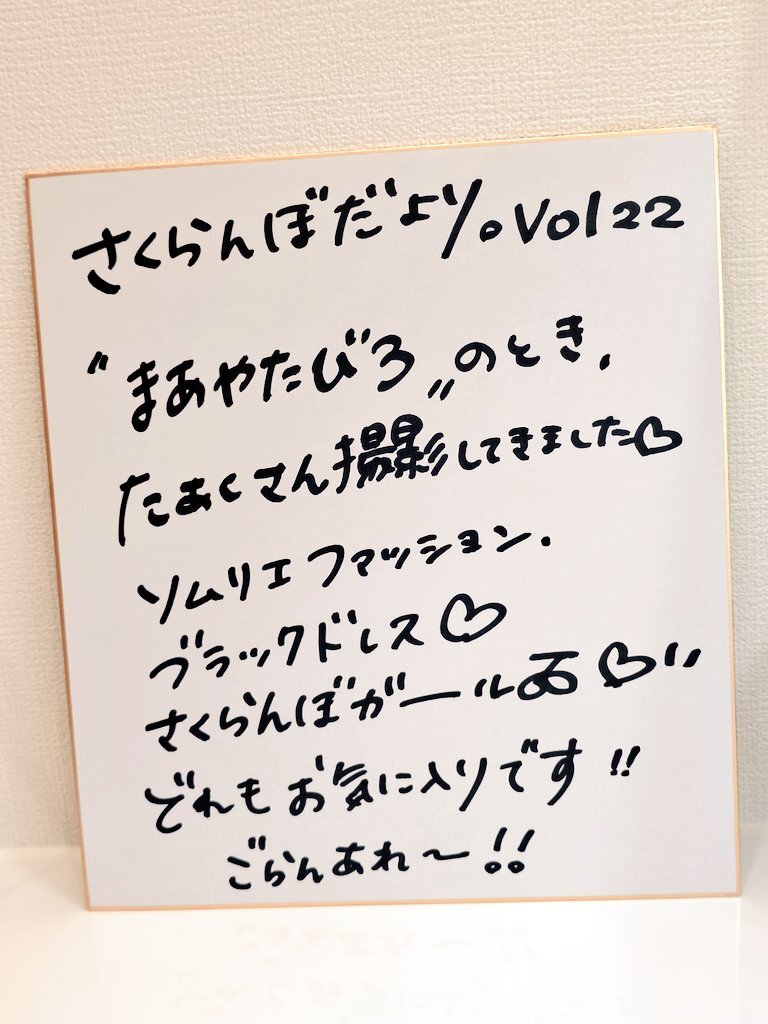 さくらんぼだより。Vol22
"まあやたびろ"のとき、
たぁくさん撮影してきました♡
ソムリエファッション、
ブラックドレス♡
さくらんぼガール🍒♡"
どれもお気に入りです!!
ごらんあれ〜!!